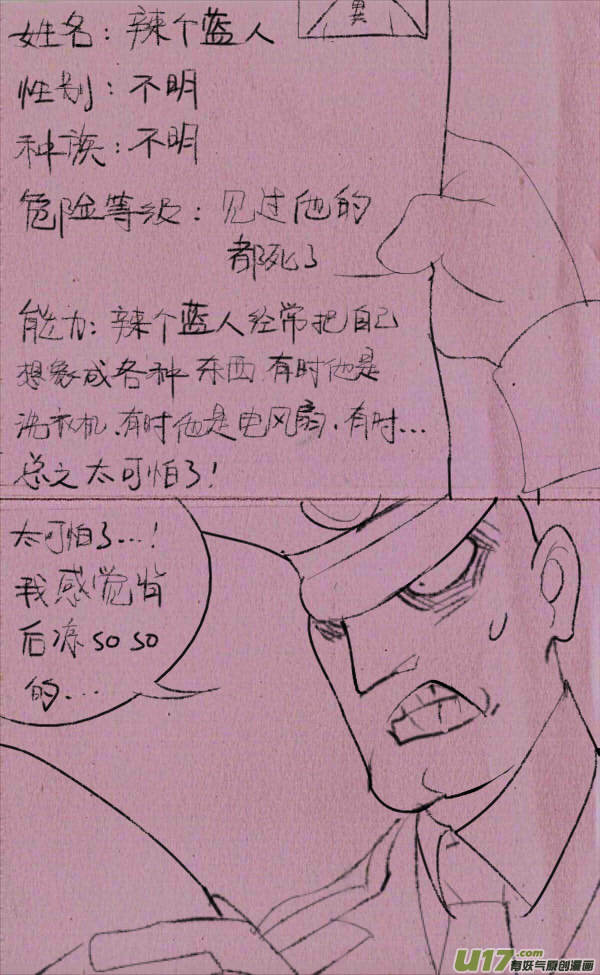 異
姓名：辣个蓝人
性别：不明
种族：不明
危险等级：见过他的
都死了
能力：辣个蓝人经常把自己
想象成各种东西 有时他是
洗衣机、有时他是电风扇、有时…
总之太可怕了！
太可怕了…！
我感觉背
后凉soso
的…
U17.com
有妖气原创漫画